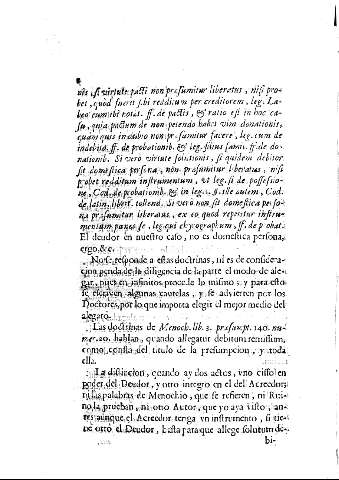 uis, si virtute pacti non præsumitur liberatus, nisi pro-
bet, quod fuerit sibi redditum per creditorem, leg. La-
beo eum ibi notat. ff. de pactis, & ratio est in hoc ca-
su, quia pactum de non petendo habet vim donationis,
quam quis in dubio non præsumitur facere, leg. cum de
indebito, ff. de probationib. & leg. filius famil. ff. de do-
nationib. Si vero virtute solutionis, si quidem debitor
sit domestica persona, non præsumitur liberatus, nisi
probet redditum instrumentum, ut leg. si de possessio-
ne, Cod. de probationib. & in leg. 1. §. ille autem, Cod.
de latin. libert. tollend. Si vero non sit domestica perso-
na præsumitur liberatus, ex eo quod repertur instru-
mentum penes se, leg. qui chyrographum, ff. de probat.
El deudor en nuestro caso, no es domestica persona,
ergo, &c.
No se responde a estas doctrinas, ni es de considera-
cion penda de la diligencia de la parte el modo de ale-
gar, pues en infinitos procede lo mismo, y para esto
se escriven algunas cautelas, y se advierten por los
Doctores, por lo que importa elegir el mejor medio del
alegato.
Las doctrinas de Menoch. lib. 3. præsumpt. 140. nu-
mer. 20. hablan, quando allegatur debitum remissum,
como consta del titulo de la presumpcion, y toda
ella.
La distincion, quando ay dos actos, vno cisso en
poder del Deudor, y otro integro en el del Acreedor,
ni las palabras de Menochio, que se refieren, ni Rui-
no la prueban, ni otro Autor, que yo aya visto, an-
tes aunque el Acreedor tenga vn instrumento, si tie-
ne otro el Deudor, basta para que allege solutum de-
bi-